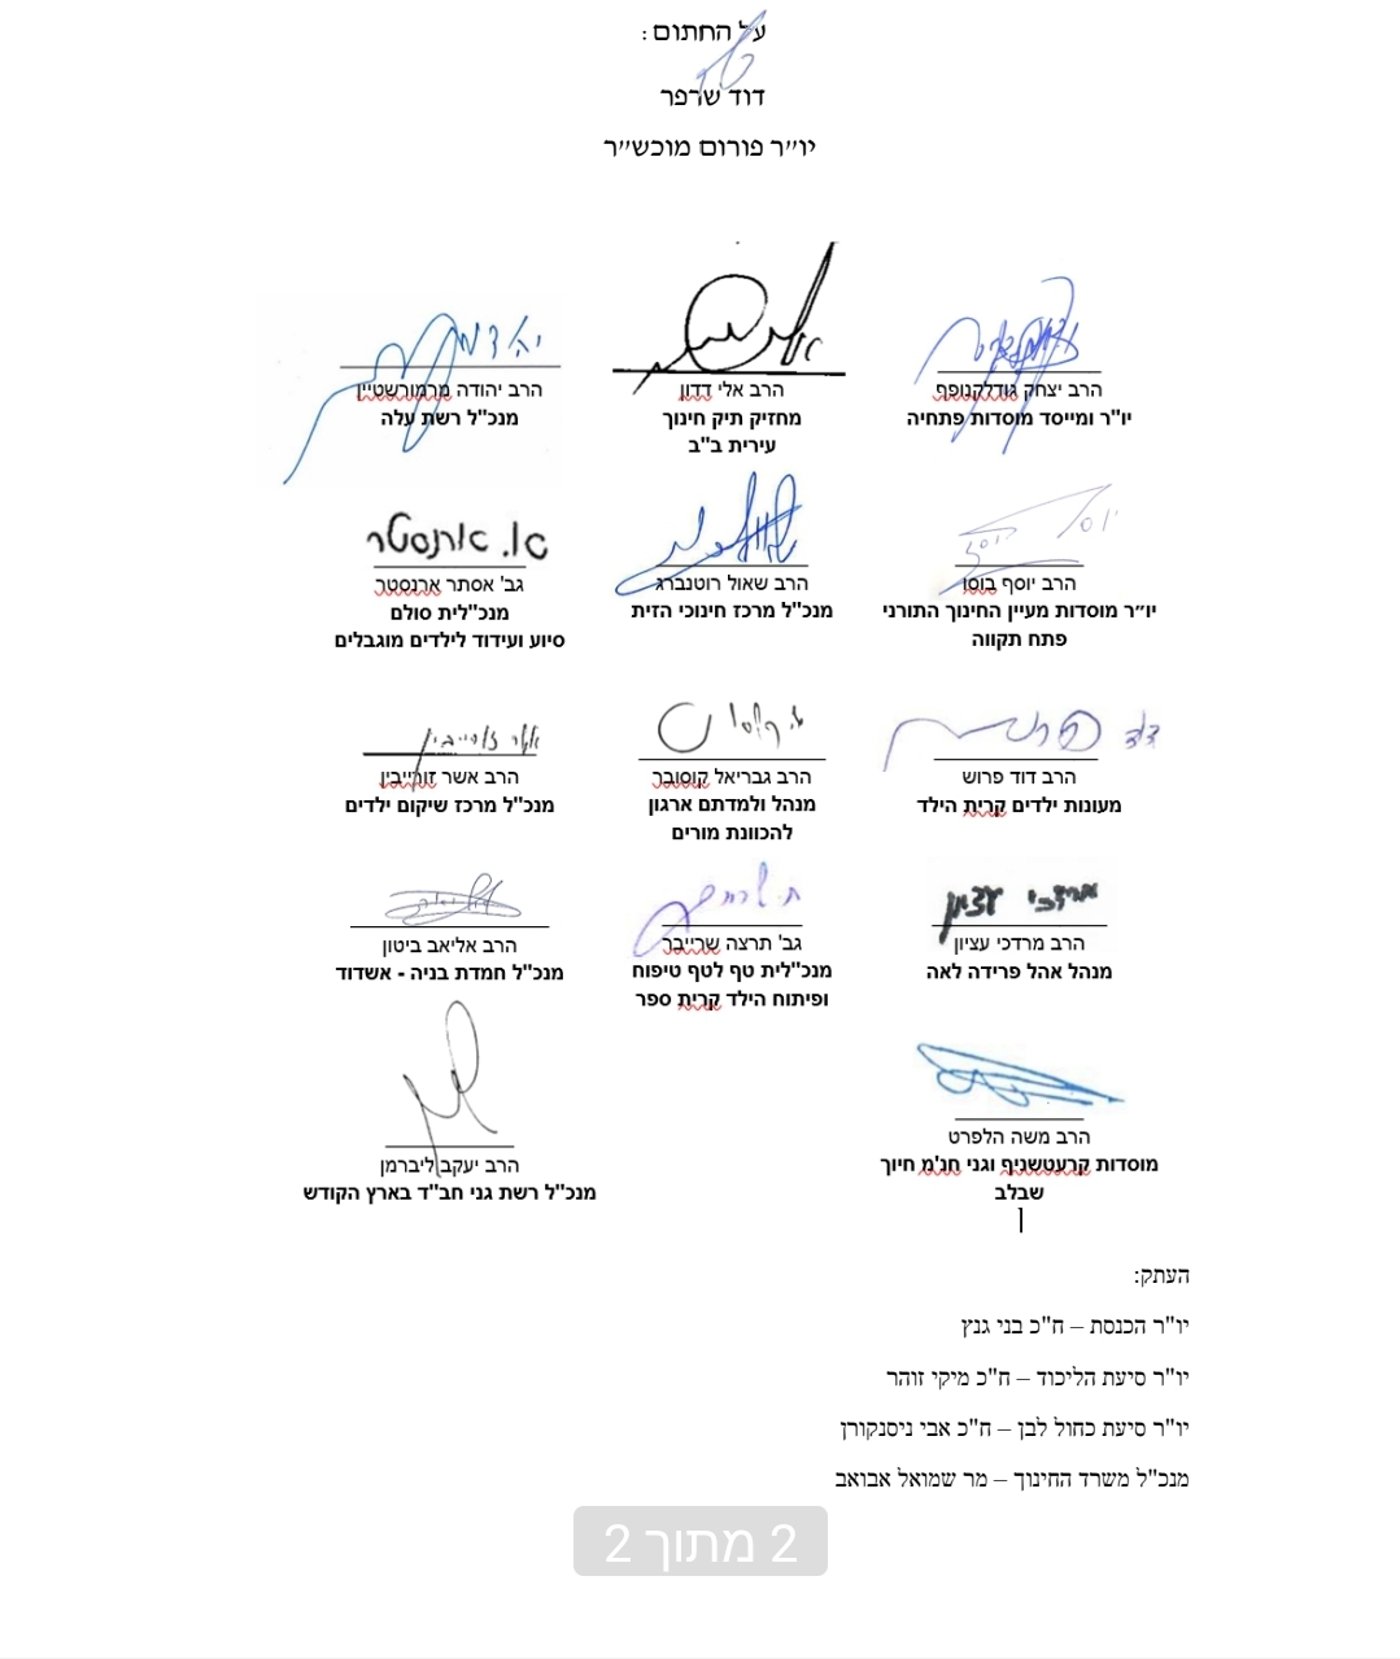 על החתום :
דוד שרפר
יו״ר פורום מוכש״ר
הרב יצחק גודלקנופף
יו"ר ומייסד מוסדות פתחיה
הרב אלי דדון
מחזיק תיק חינוך
עירית ב"ב
יהודה
הרב יהודה מרמורשטיין
מנכ"ל רשת עלה
יוסף בוסו
הרב יוסף בוסו
יו״ר מוסדות מעיין החינוך התורני
פתח תקווה
הרב שאול רוטנברג
מנכ"ל מרכז חינוכי הזית
א. ארנסטר
גב' אסתר ארנסטר
מנכ"לית סולם
סיוע ועידוד לילדים מוגבלים
דוד פרוש
הרב דוד פרוש
מעונות ילדים קרית הילד
ג. קוסובר
הרב גבריאל קוסובר
מנהל ולמדתם ארגון
להכוונת מורים
אשר זורייבין
הרב אשר זורייבין
מנכ"ל מרכז שיקום ילדים
מרדכי עציון
הרב מרדכי עציון
מנהל אהל פרידה לאה
ת. שרייבר
גב' תרצה שרייבר
מנכ"לית טף לטף טיפוח
ופיתוח הילד קרית ספר
הרב אליאב ביטון
מנכ"ל חמדת בניה - אשדוד
הרב משה הלפרט
מוסדות קרעטשניף וגני חנ'מ חיוך
שבלב
הרב יעקב ליברמן
מנכ"ל רשת גני חב"ד בארץ הקודש
העתק:
יו"ר הכנסת – ח"כ בני גנץ
יו"ר סיעת הליכוד – ח"כ מיקי זוהר
יו"ר סיעת כחול לבן – ח"כ אבי ניסנקורן
מנכ"ל משרד החינוך – מר שמואל אבואב
2 מתוך 2